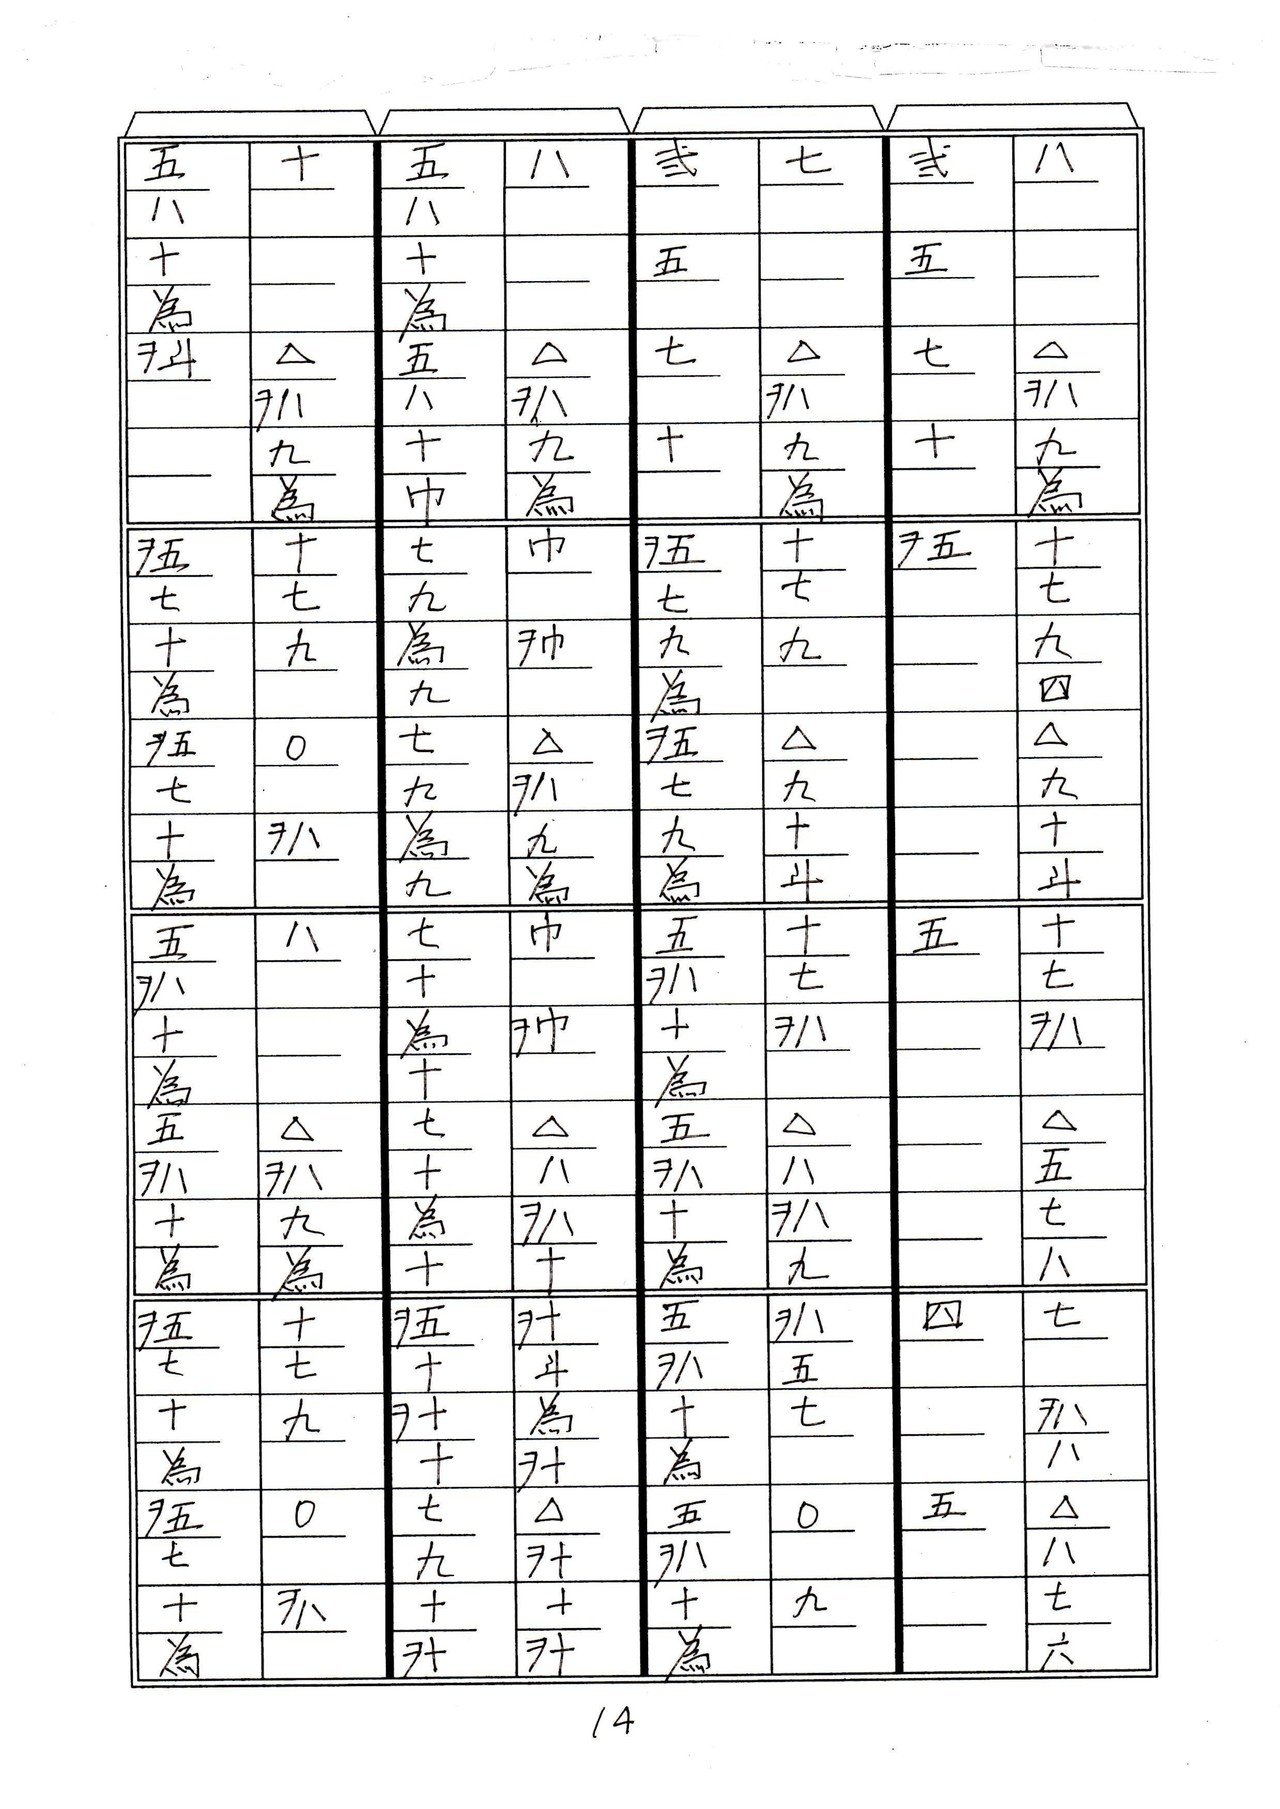 八 △ ヲ八 九 為 十 七 九 四 △ 九 十 斗 十 七 ヲ八 △ 五 七 八 七 ヲ八 八 △ 八 七 六
弐 五 七 十 ヲ五 五 四 五
七 △ ヲ八 九 為 十 七 九 △ 九 十 斗 十 七 ヲ八 △ 八 ヲ八 九 ヲ八 五 七 〇 九
弐 五 七 十 ヲ五 七 九 為 ヲ五 七 九 為 五 ヲ八 十 為 五 ヲ八 十 為 五 ヲ八 十 為 五 ヲ八 十 為
八 △ ヲ八 九 為 巾 ヲ巾 △ ヲ八 九 為 巾 ヲ巾 △ 八 ヲ八 十 ヲ十 斗 為 ヲ十 △ ヲ十 十 ヲ十
五 八 十 為 五 八 十 巾 七 九 為 九 七 九 為 九 七 十 為 十 七 十 為 十 ヲ五 十 ヲ十 十 七 九 十 ヲ十
十 △ ヲ八 九 為 十 七 九 〇 ヲ八 八 △ ヲ八 九 為 十 七 九 〇 ヲ八
五 八 十 為 ヲ斗 ヲ五 七 十 為 ヲ五 七 十 為 五 ヲ八 十 為 五 ヲ八 十 為 ヲ五 七 十 為 ヲ五 七 十 為
14